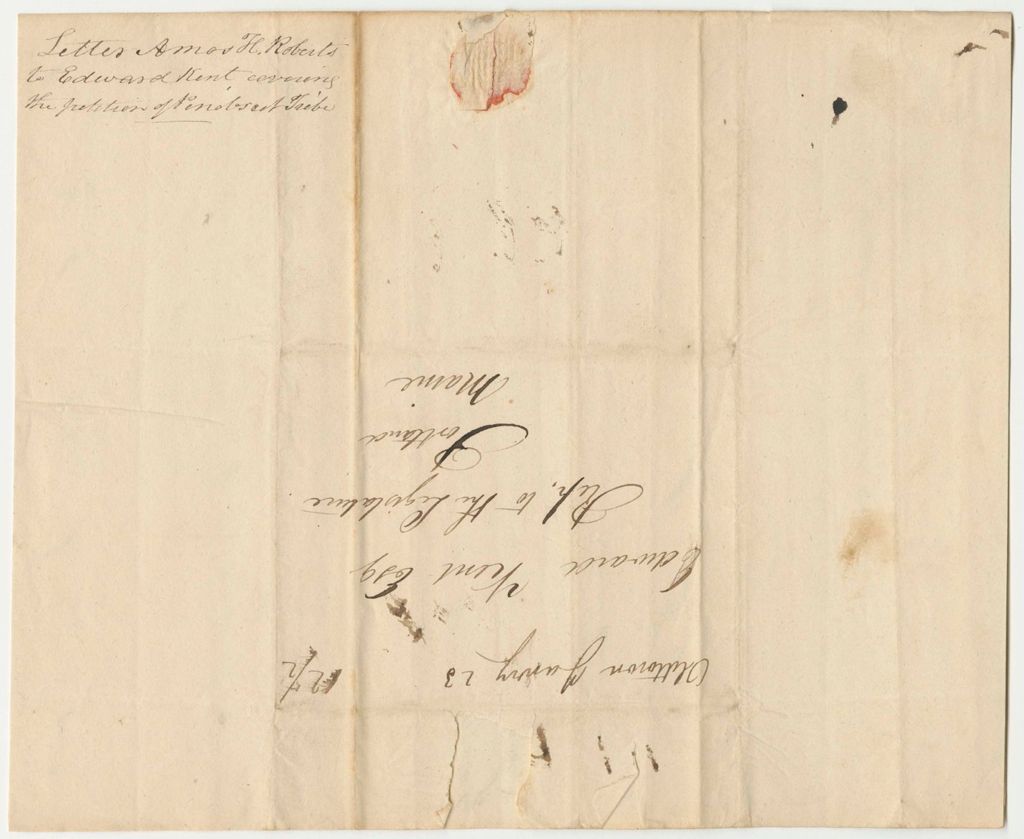 Letter Amos H. Roberts
to Edward Kent covering
the petition of Penobscot Tribe
Oldtown Janry 23
12 1/2
Edward Kent Esq
Rep. to the Legislature
Portland
Maine